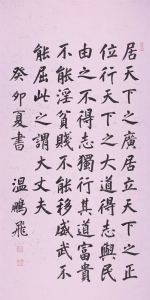 居天下之廣居立天下之正
位行天下之大道得志與民
由之不得志獨行其道富貴
不能淫貧賤不能移威武不
能屈此之謂大丈夫
癸卯夏書 温鵬飛